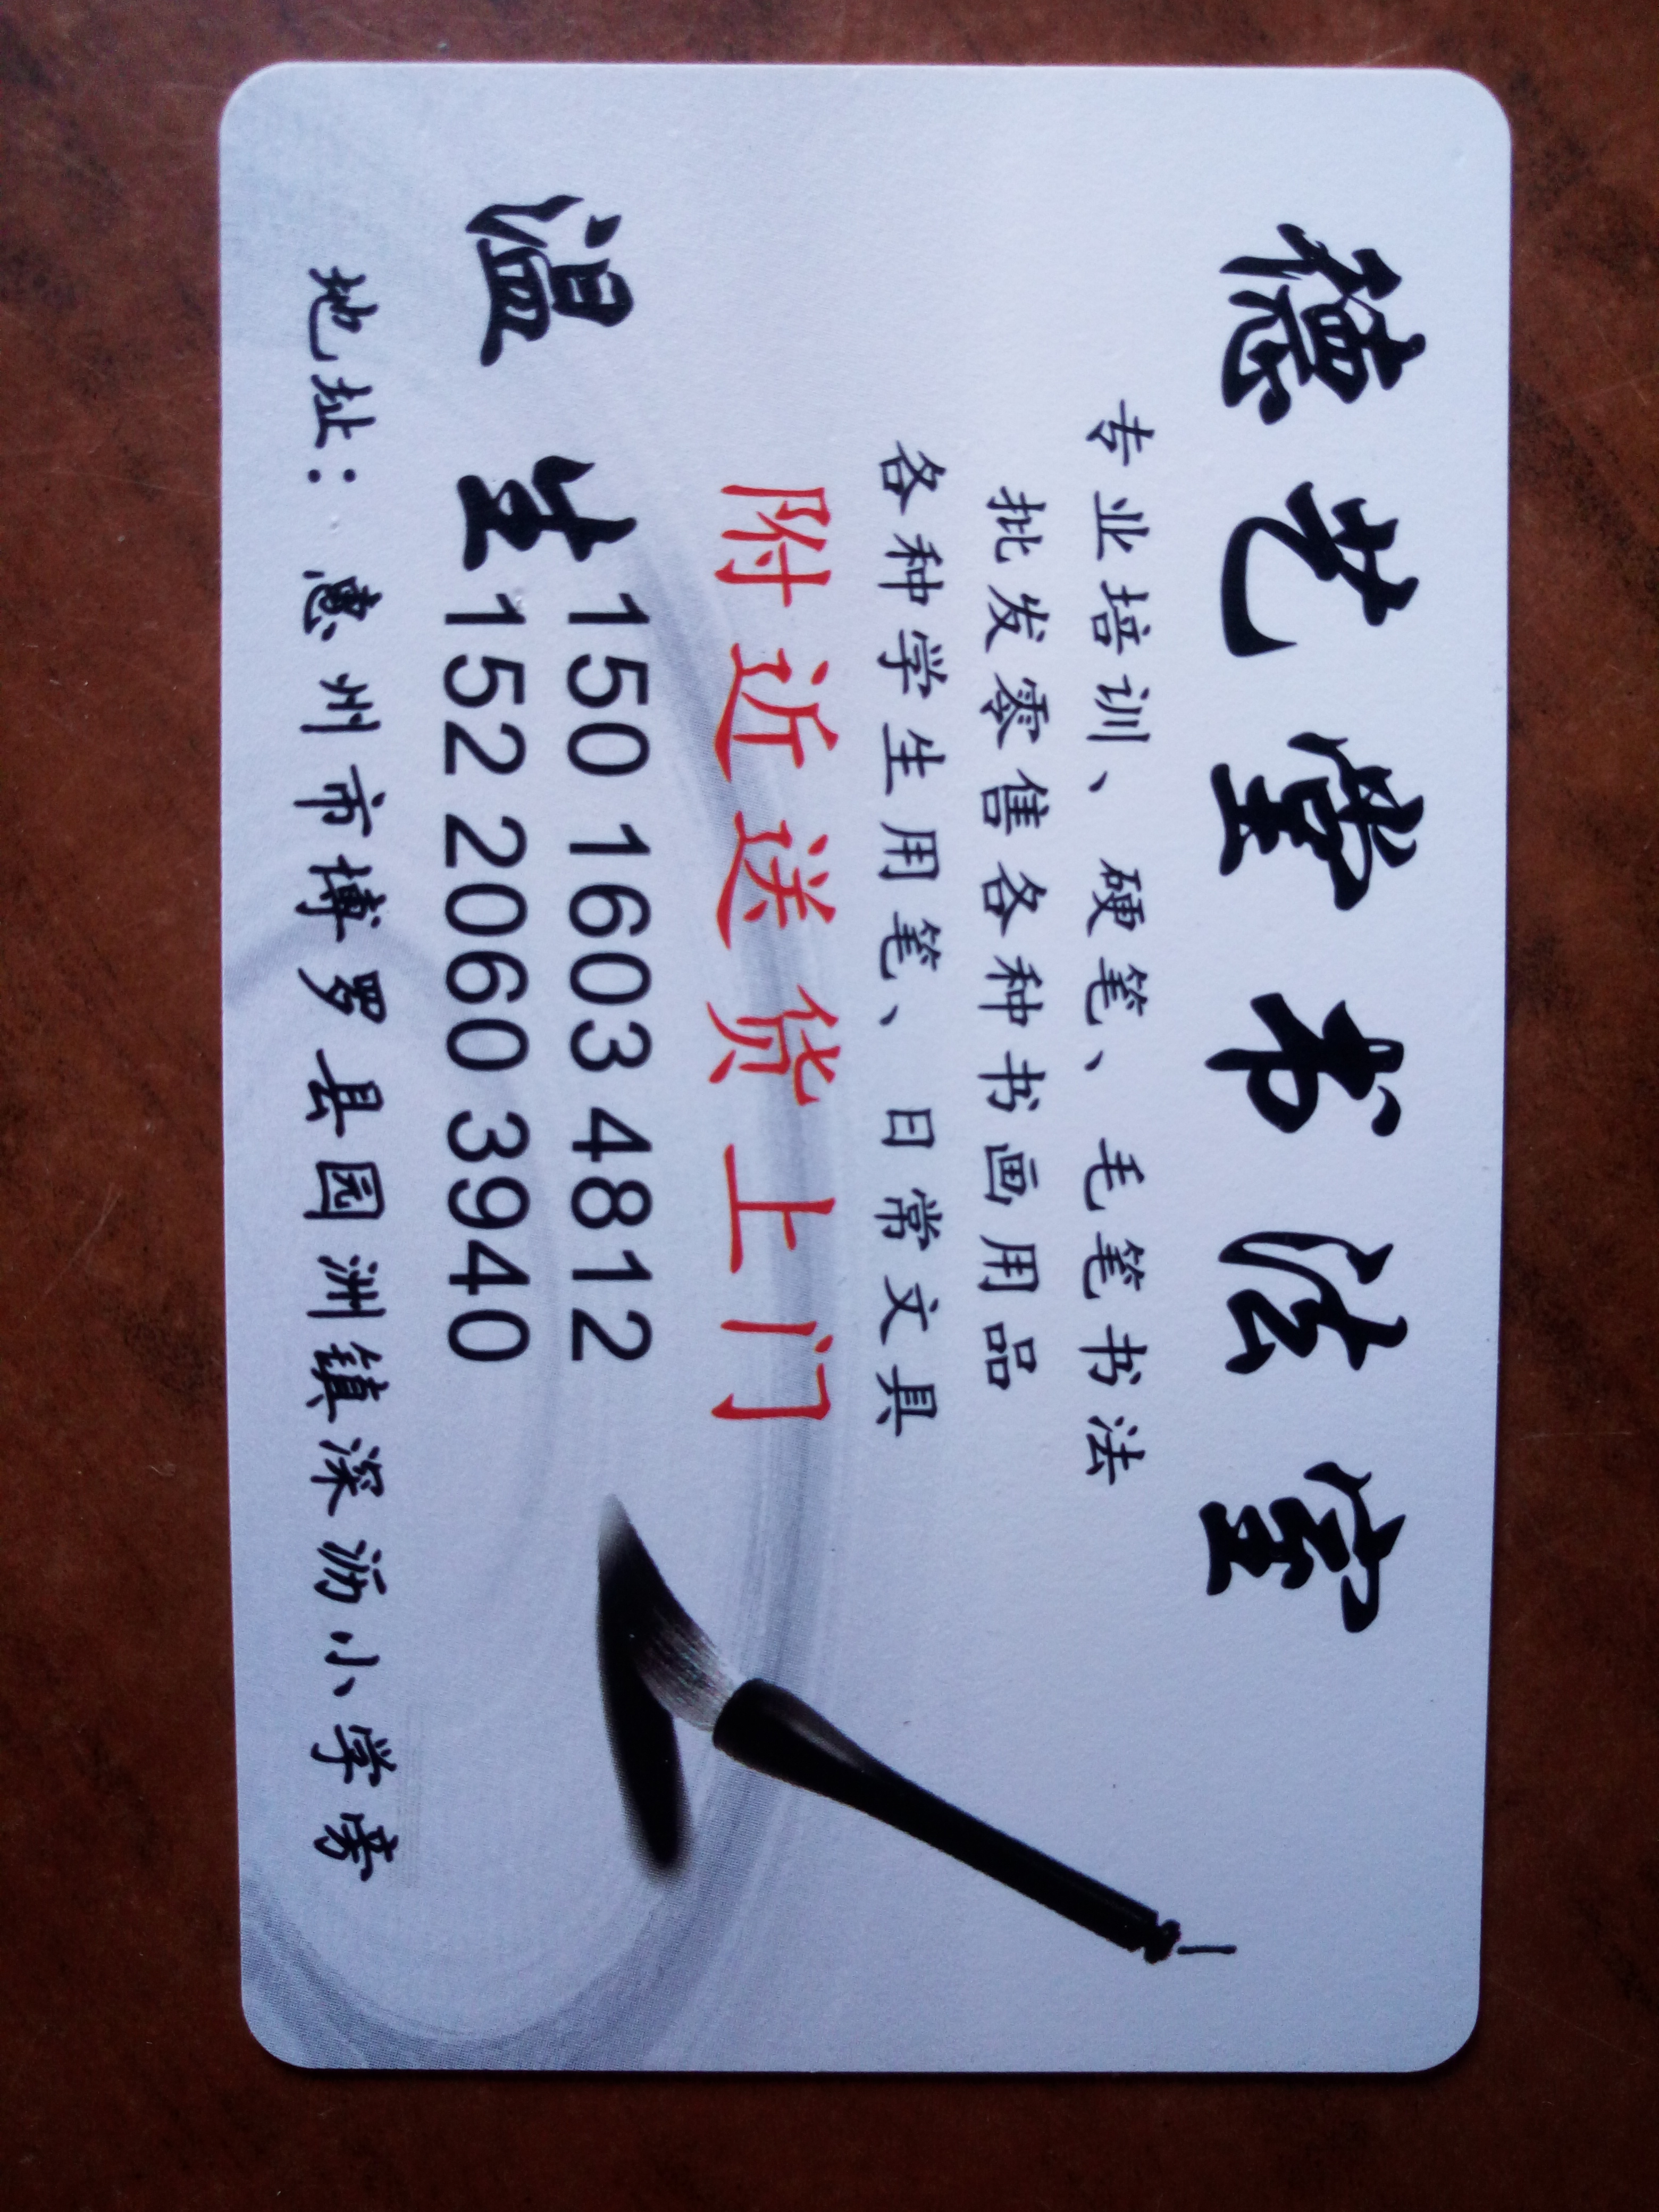 德艺堂书法室
专业培训、硬笔、毛笔书法
批发零售各种书画用品
各种学生用笔、日常文具
附近送货上门
温生
150 1603 4812
152 2060 3940
地址：惠州市博罗县园洲镇深沥小学旁